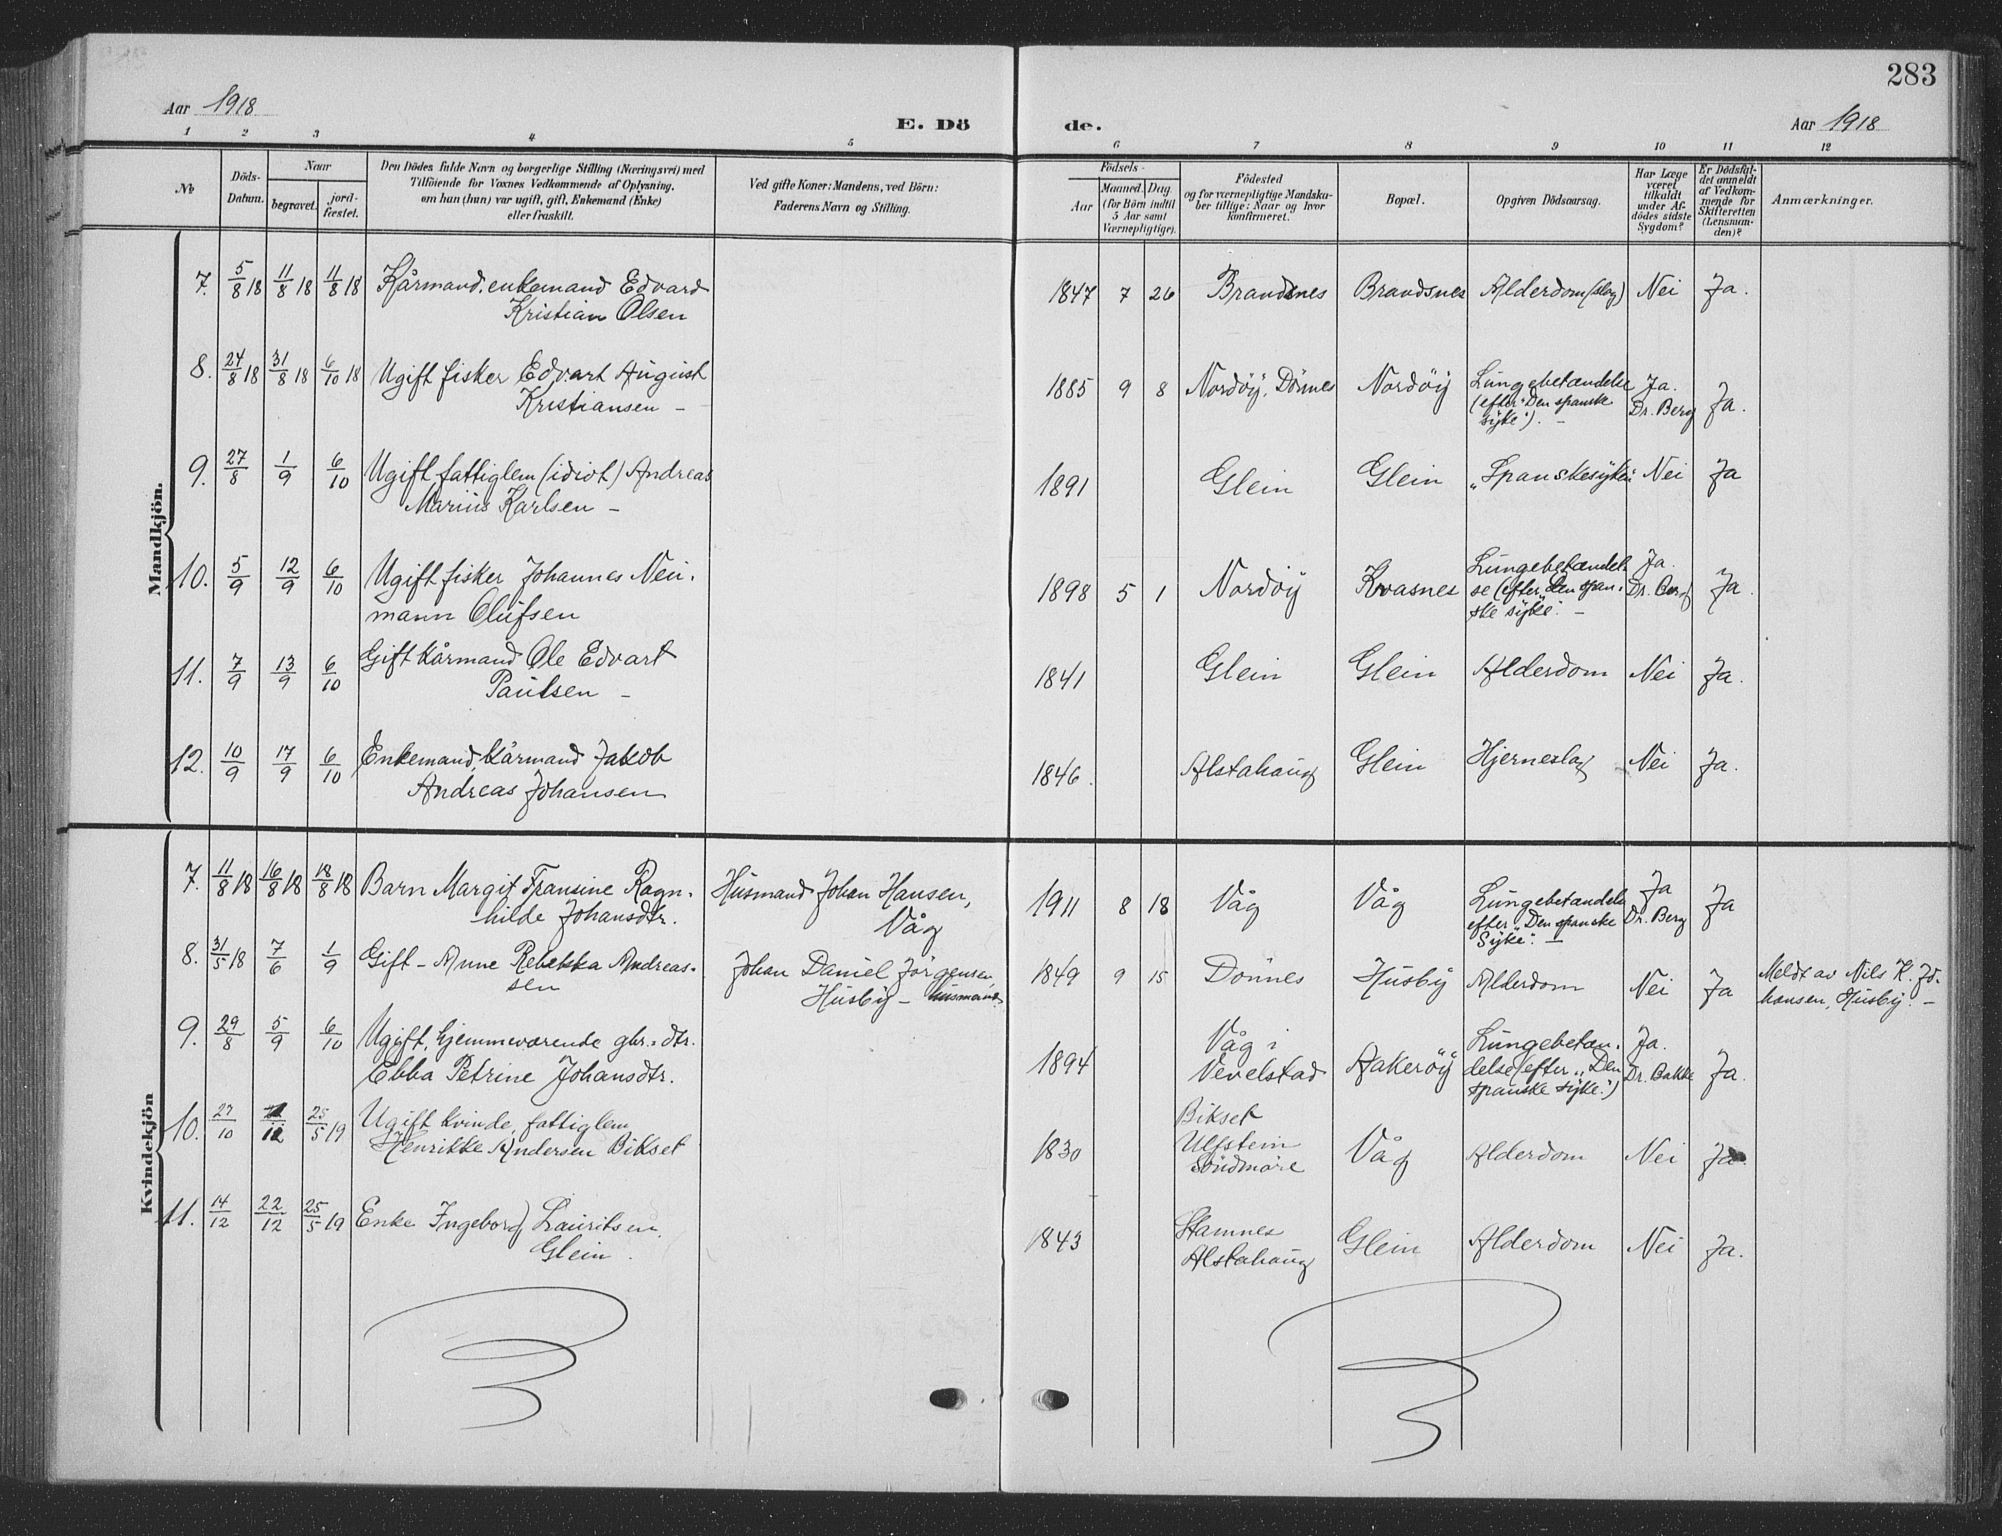 283
Aar 1918
E. Dö de.
Aar 1918
1 2 3 4 5 6 7 8 9 10 11 12
No
Döds-Datum.
Naar
begravet.
jord-fæstet.
Den Dödes fulde Navn og borgerlige Stilling (Næringsvei) med
Tilföiende for Voxnes Vedkommende af Oplysning,
om han (hun) var ugift, gift, Enkemand (Enke)
eller fraskilt.
Ved gifte Koner: Mandens, ved Börn:
Faderens Navn og Stilling.
Födsels-
Aar
Maaned. Dag.
(for Börn indtil
5 Aar samt
Værnepligtige).
Födested
og for værnepligtige Mandska-
ber tillige: Naar og hvor
konfirmeret.
Bopæl.
Opgiven Dödsaarsag.
Har Læge
været
tilkaldt
under Af-
dödes sidste
Sygdom?
Er Dödsfal-
det anmeldt
af Vedkom-
mende for
Skifteretten
(Lensman-
den)?
Anmærkninger.
Mandkjön.
7. 5/8 18 11/8 18 11/8 18 Kårmand, enkemand Edvard
Kristian Olsen
1847 7 26 Brandsnes Brandsnes Alderdom (slag) Nei Ja.
8. 24/8 18 31/8 18 6/10 18 Ugift fisker Edvart August
Kristiansen –
1885 9 8 Nordöy, Dönnes Nordöy Lungebetændelse
(efter "Den spanske
syke"). –
Ja.
Dr. Berg
Ja.
9. 27/8 1/9 6/10 Ugift, fattiglem (idiot) Andreas
Marius Karlsen –
1891 Glein Glein „Spanskesyken" Nei Ja
10. 5/9 12/9 6/10 Ugift fisker Johannes Neu-
mann Olufsen
1898 5 1 Nordöy Kvasnes Lungebetændel-
se (efter „den span-
ske syke". –
Ja.
Dr. Berg
Ja.
11. 7/9 13/9 6/10 Gift kårmand Ole Edvart
Paulsen –
1841 Glein Glein Alderdom Nei Ja.
12. 10/9 17/9 6/10 Enkemand, kårmand Jakob
Andreas Johansen
1846. Alstahaug Glein Hjerneslag Nei Ja.
Kvindekjön
7. 11/8 18 16/8 18 18/8 18 Barn Margit Fransine Ragn-
hilde Johansdtr.
Husmand Johan Hansen,
Våg
1911 8 18 Våg Våg Lungebetændelse
efter „Den spanske
Syke". –
Ja
Dr. Berg
Ja
8. 31/5 18 7/6 1/9 Gift – Anne Rebekka Andreas-
sen
Johan Daniel Jörgensen
Husby – husmand.
1849 9 15 Dönnes Husby Alderdom Nei Ja Meldt av Nils K. Jo-
hansen, Husby. –
9. 29/8 5/9 6/10 Ugift, hjemmeværende gbr.-dtr.
Ebba Petrine Johansdtr.
1894 Våg i
Vevelstad
Aakeröy Lungebetæn-
delse (efter „Den
spanske syke".)
Ja.
Dr. Bakke
Ja.
10. 27/10 /12 25/5 19 Ugift kvinde, fattiglem
Henrikke Andersen Bikset
1830 Bikset
Ulfstein
Söndmöre
Våg Alderdom Nei Ja.
11. 14/12 22/12 25/5 19 Enke Ingeborg Lauritsen.
Glein.
1843 Stamnes
Alstahaug
Glein Alderdom Nei Ja.